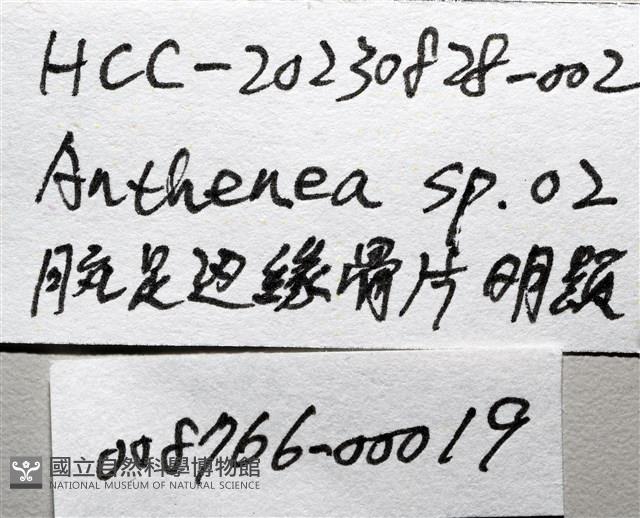 HCC-20230828-002
Anthenea sp.02
腕足边緣骨片明顯
008766-00019
國立自然科學博物館
NATIONAL MUSEUM OF NATURAL SCIENCE